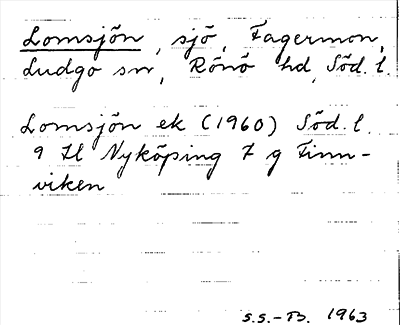 Lomsjön, sjö, Fagermon,
Ludgo sn, Rönö hd, Söd. l.
Lomsjön ek (1960) Söd. l.
9 H Nyköping 7 g Finn-
viken
S.S.-B. 1963